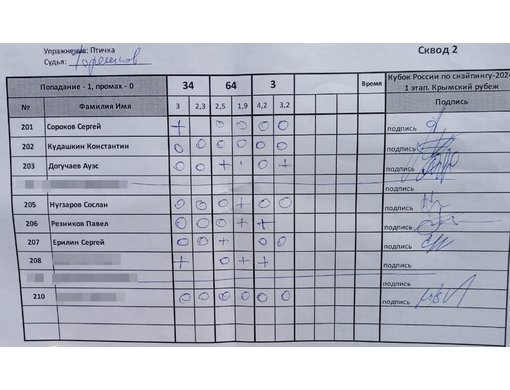 Упражнение: Птичка
Судья:
Сквод 2
Попадание - 1, промах - 0 34 64 3 Время Кубок России по снайпингу-2024
1 этап. Крымский рубеж
№ Фамилия Имя 3 2,3 2,5 1,9 4,2 3,2 Подпись
201 Сороков Сергей + o o o подпись
202 Кудашкин Константин o o o o o o подпись
203 Догучаев Ауэс o o + + o + подпись
подпись
205 Нугзаров Сослан o o o + o o подпись
206 Резников Павел o o o + + подпись
207 Ерилин Сергей o o + o o подпись
208 + o + + подпись
подпись
210 o o o o o o подпись